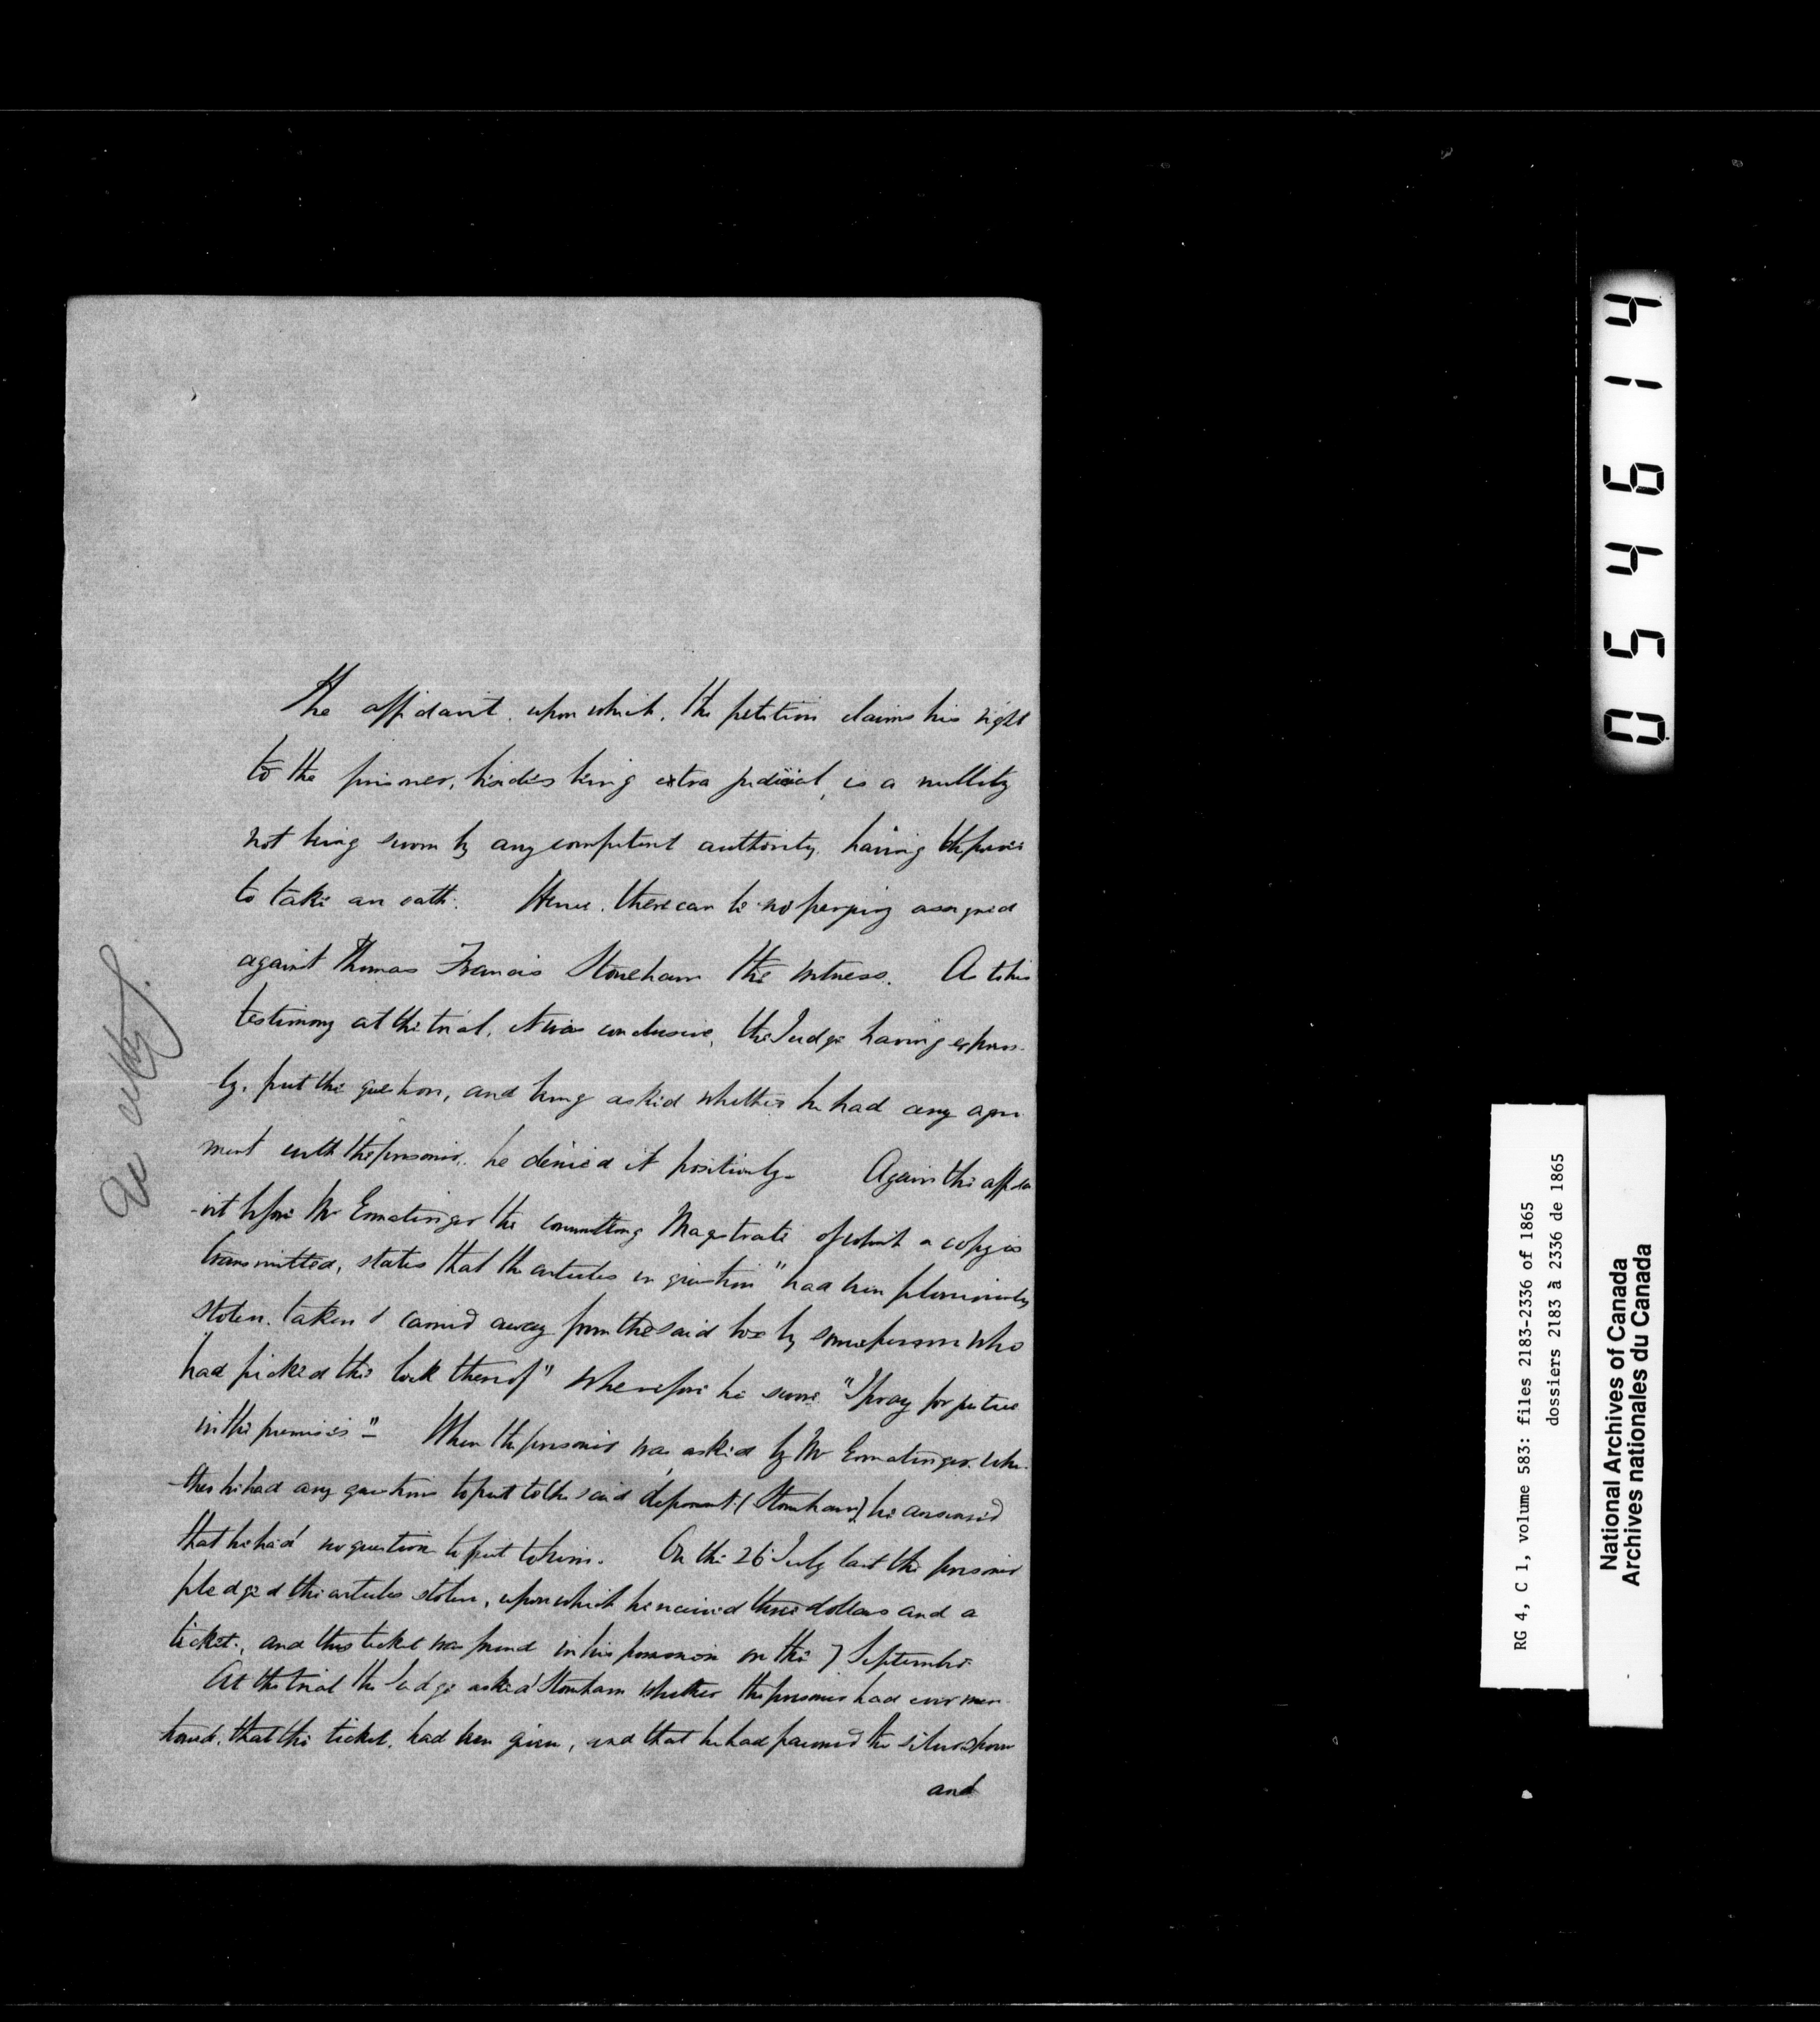 The affidavit upon which, the petition claims his right
to the prisoner, besides being extra judicial, is a nullity
not being sworn by any competent authority, having the power
to take an oath. Hence there can be no perjury assigned
against Thomas Francis Stoneham the witness. As to his
testimony at the trial, it was conclusive, the Judge having express-
ly, put the question, and being asked whether he had any agree
ment with the prisoner, he denied it positively. Again the affida
-vit before Mr Ermatinger the committing Magistrate of which a copy is
transmitted, states that the articles in question "had been feloniously
stolen, taken & carried away from the said box by some person who
had picked the lock thereof" wherefore he swore "I pray for justice
in the premises" - When the prisoner was asked by Mr Ermatinger whe-
-ther he had any questions to put to the said deponent (Stoneham) he answered
that he had no question to put to him. On the 26 July last the prisoner
pledged the articles stolen, upon which he received three dollars and a
ticket, and this ticket was found in his possession on the 7 September
At the trial the Judge asked Stoneham whether the prisoner had ever men-
tioned, that the ticket, had been given, and that he had pawned the silver spoon
and
RG 4, C 1, volume 583: files 2183-2336 of 1865
dossiers 2183 à 2336 de 1865
National Archives of Canada
Archives nationales du Canada
054614